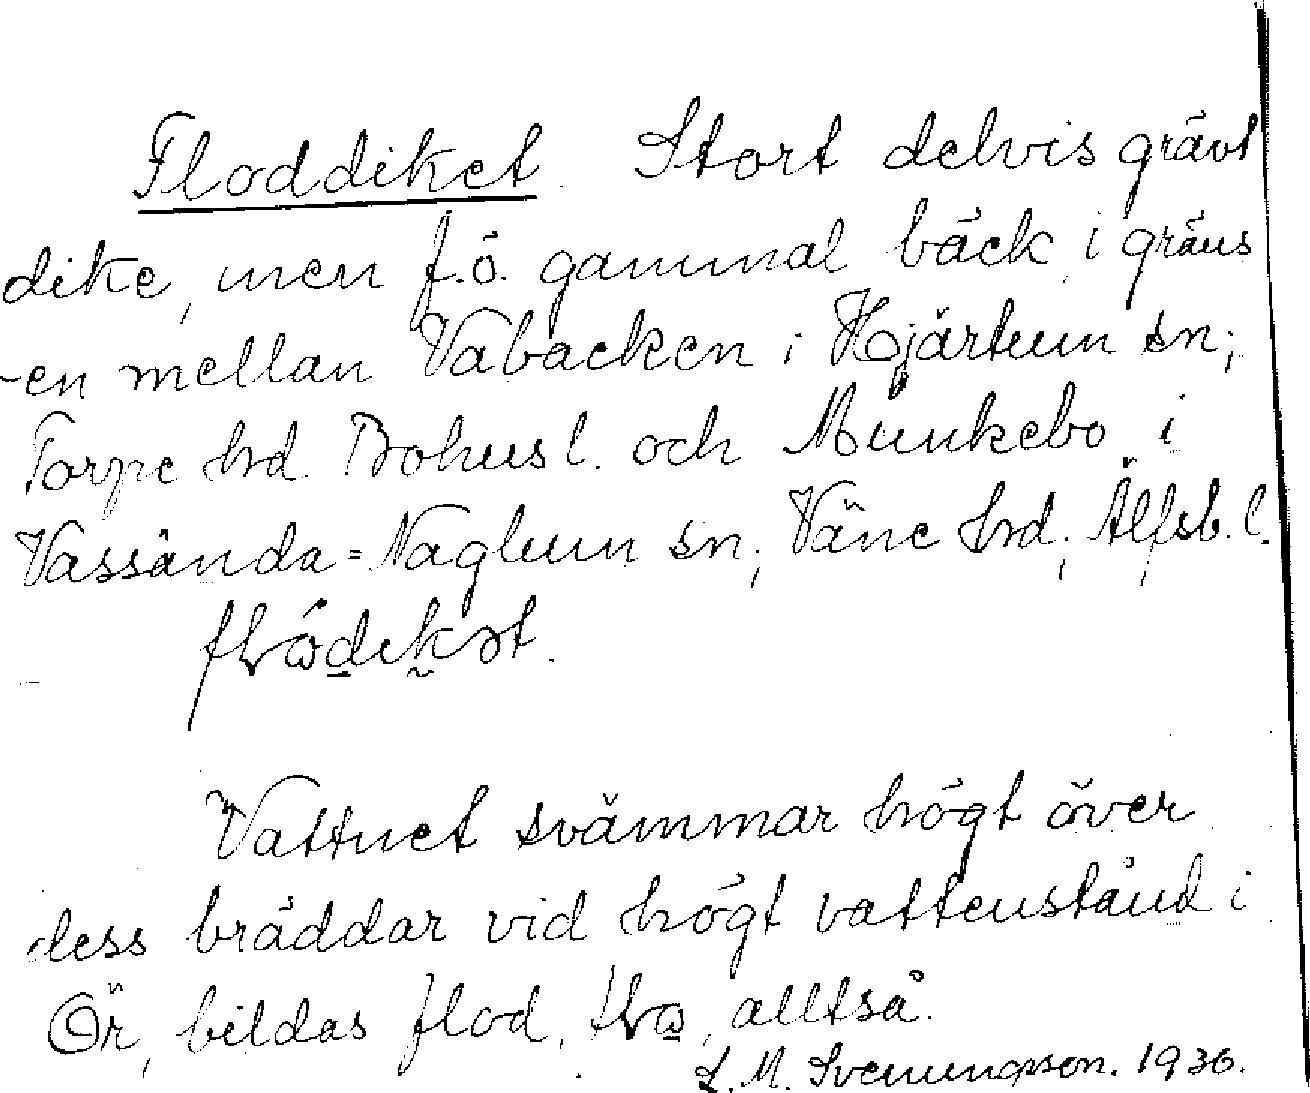 Floddiket. Stort delvis grävt
dike, men f.ö. gammal bäck, i gräns
-en mellan Vabacken i Hjärtum sn;
Torpe hd. Bohusl. och Munkebo i
Vassända=Naglum sn; Väne hd; Älfsb. l.
Vattnet svämmar högt över
dess bräddar vid högt vattenstånd i
Ör, bildas flod, alltså.
S. M. Svenungsson. 1936.